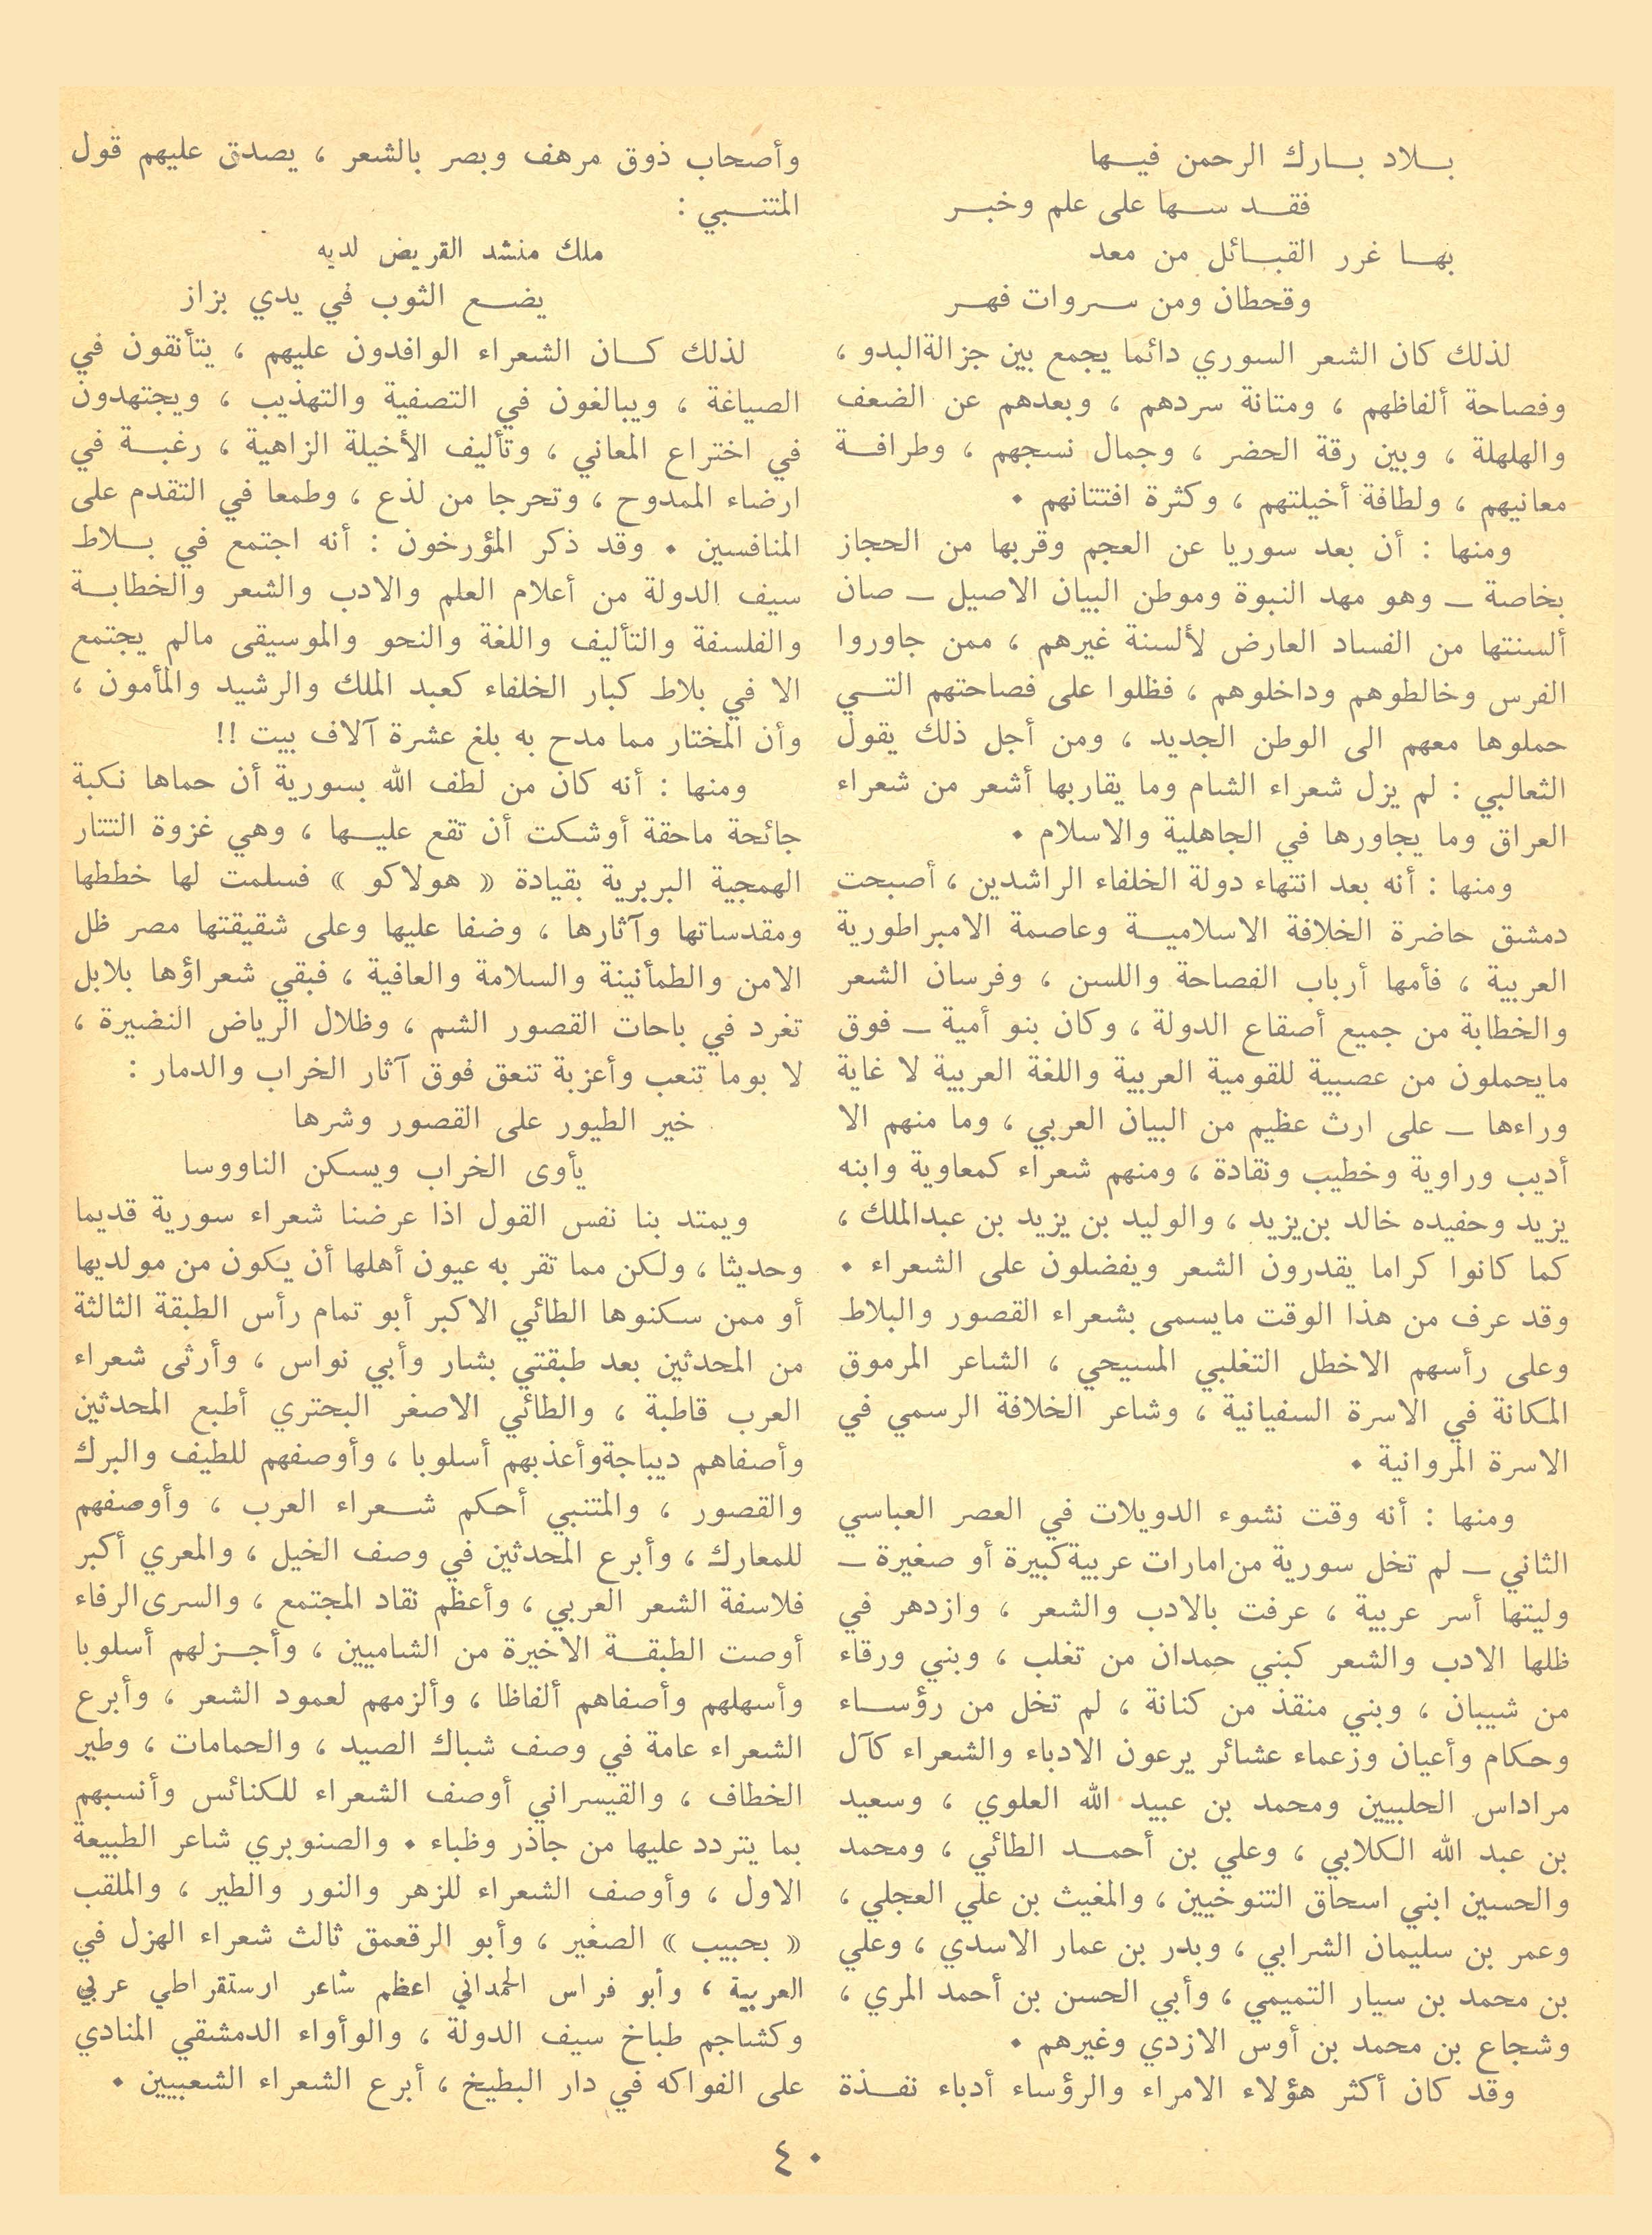 بلاد بارك الرحمن فيها
فقد سها على علم وخبر
بها غرر القبائل من معد
وقحطان ومن سروات فهر
لذلك كان الشعر السوري دائما يجمع بين جزالة البدو ،
وفصاحة ألفاظهم ، ومتانة سردهم ، وبعدهم عن الضعف
والهلهلة ، وبين رقة الحضر ، وجمال نسجهم ، وطرافة
معانيهم ، ولطافة أخيلتهم ، وكثرة افتتانهم ٠
ومنها : أن بعد سوريا عن العجم وقربها من الحجاز
بخاصة ــ وهو مهد النبوة وموطن البيان الاصيل ــ صان
ألسنتها من الفساد العارض لألسنة غيرهم ، ممن جاوروا
الفرس وخالطوهم وداخلوهم ، فظلوا على فصاحتهم التي
حملوها معهم الى الوطن الجديد ، ومن أجل ذلك يقول
الثعالبي : لم يزل شعراء الشام وما يقاربها أشعر من شعراء
العراق وما يجاورها في الجاهلية والاسلام ٠
ومنها : أنه بعد انتهاء دولة الخلفاء الراشدين ، أصبحت
دمشق حاضرة الخلافة الاسلامية وعاصمة الامبراطورية
العربية ، فأمها أرباب الفصاحة واللسن ، وفرسان الشعر
والخطابة من جميع أصقاع الدولة ، وكان بنو أمية ــ فوق
مايحملون من عصبية للقومية العربية واللغة العربية لا غاية
وراءها ــ على ارث عظيم من البيان العربي ، وما منهم الا
أديب وراوية وخطيب ونقادة ، ومنهم شعراء كمعاوية وابنه
يزيد وحفيده خالد بن يزيد ، والوليد بن يزيد بن عبدالملك ،
كما كانوا كراما يقدرون الشعر ويفضلون على الشعراء ٠
وقد عرف من هذا الوقت مايسمى بشعراء القصور والبلاط
وعلى رأسهم الاخطل التغلبي المسيحي ، الشاعر المرموق
المكانة في الاسرة السفيانية ، وشاعر الخلافة الرسمي في
الاسرة المروانية ٠
ومنها : أنه وقت نشوء الدويلات في العصر العباسي
الثاني ــ لم تخل سورية من امارات عربية كبيرة أو صغيرة ــ
وليتها أسر عربية ، عرفت بالادب والشعر ، وازدهر في
ظلها الادب والشعر كبني حمدان من تغلب ، وبني ورقاء
من شيبان ، وبني منقذ من كنانة ، لم تخل من رؤساء
وحكام وأعيان وزعماء عشائر يرعون الادباء والشعراء كآل
مراداس الحلبيين ومحمد بن عبيد الله العلوي ، وسعيد
بن عبد الله الكلابي ، وعلي بن أحمد الطائي ، ومحمد
والحسين ابني اسحاق التنوخيين ، والمغيث بن علي العجلي ،
وعمر بن سليمان الشرابي ، وبدر بن عمار الاسدي ، وعلي
بن محمد بن سيار التميمي ، وأبي الحسن بن أحمد المري ،
وشجاع بن محمد بن أوس الازدي وغيرهم ٠
وقد كان أكثر هؤلاء الامراء والرؤساء أدباء نفذة
وأصحاب ذوق مرهف وبصر بالشعر ، يصدق عليهم قول
المتنبي :
ملك منشد القريض لديه
يضع الثوب في يدي بزاز
لذلك كان الشعراء الوافدون عليهم ، يتأنقون في
الصياغة ، ويبالغون في التصفية والتهذيب ، ويجتهدون
في اختراع المعاني ، وتأليف الأخيلة الزاهية ، رغبة في
ارضاء الممدوح ، وتحرجا من لذع ، وطمعا في التقدم على
المنافسين ٠ وقد ذكر المؤرخون : أنه اجتمع في بلاط
سيف الدولة من أعلام العلم والادب والشعر والخطابة
والفلسفة والتأليف واللغة والنحو والموسيقى مالم يجتمع
الا في بلاط كبار الخلفاء كعبد الملك والرشيد والمأمون ،
وأن المختار مما مدح به بلغ عشرة آلاف بيت !!
ومنها : أنه كان من لطف الله بسورية أن حماها نكبة
جائحة ماحقة أوشكت أن تقع عليها ، وهي غزوة التتار
الهمجية البربرية بقيادة « هولاكو » فسلمت لها خططها
ومقدساتها وآثارها ، وضفا عليها وعلى شقيقتها مصر ظل
الامن والطمأنينة والسلامة والعافية ، فبقي شعراؤها بلابل
تغرد في باحات القصور الشم ، وظلال الرياض النضيرة ،
لا بوما تنعب وأعزبة تنعق فوق آثار الخراب والدمار :
خير الطيور على القصور وشرها
يأوى الخراب ويسكن الناووسا
ويمتد بنا نفس القول اذا عرضنا شعراء سورية قديما
وحديثا ، ولكن مما تقر به عيون أهلها أن يكون من مولديها
أو ممن سكنوها الطائي الاكبر أبو تمام رأس الطبقة الثالثة
من المحدثين بعد طبقتي بشار وأبي نواس ، وأرثى شعراء
العرب قاطبة ، والطائي الاصغر البحتري أطبع المحدثين
وأصفاهم ديباجة وأعذبهم أسلوبا ، وأوصفهم للطيف والبرك
والقصور ، والمتنبي أحكم شعراء العرب ، وأوصفهم
للمعارك ، وأبرع المحدثين في وصف الخيل ، والمعري أكبر
فلاسفة الشعر العربي ، وأعظم نقاد المجتمع ، والسرى الرفاء
أوصت الطبقة الاخيرة من الشاميين ، وأجزلهم أسلوبا
وأسهلهم وأصفاهم ألفاظا ، وألزمهم لعمود الشعر ، وأبرع
الشعراء عامة في وصف شباك الصيد ، والحمامات ، وطير
الخطاف ، والقيسراني أوصف الشعراء للكنائس وأنسبهم
بما يتردد عليها من جاذر وظباء ٠ والصنوبري شاعر الطبيعة
الاول ، وأوصف الشعراء للزهر والنور والطير ، والملقب
« بحبيب » الصغير ، وأبو الرقعمق ثالث شعراء الهزل في
العربية ، وأبو فراس الحمداني اعظم شاعر ارستقراطي عربي
وكشاجم طباخ سيف الدولة ، والوأواء الدمشقي المنادي
على الفواكه في دار البطيخ ، أبرع الشعراء الشعبيين ٠
٤٠